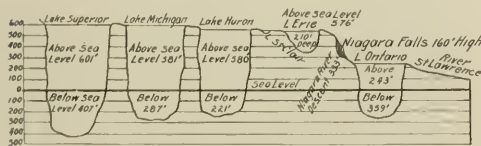 600
500
400
300
200
100
0
100
200
300
400
500
Lake Superior
Above Sea
Level 601'
Below Sea
Level 407'
Lake Michigan
Above Sea
Level 581'
Below
287'
Lake Huron
Above Sea
Level 580'
Below
221'
L. St Clair
Above Sea Level
L Erie 576'
210'
Deep
Sea Level
Niagara River
Descent 333'
Niagara Falls 160' High
L Ontario
Above
243'
Below
359'
River
St Lawrence